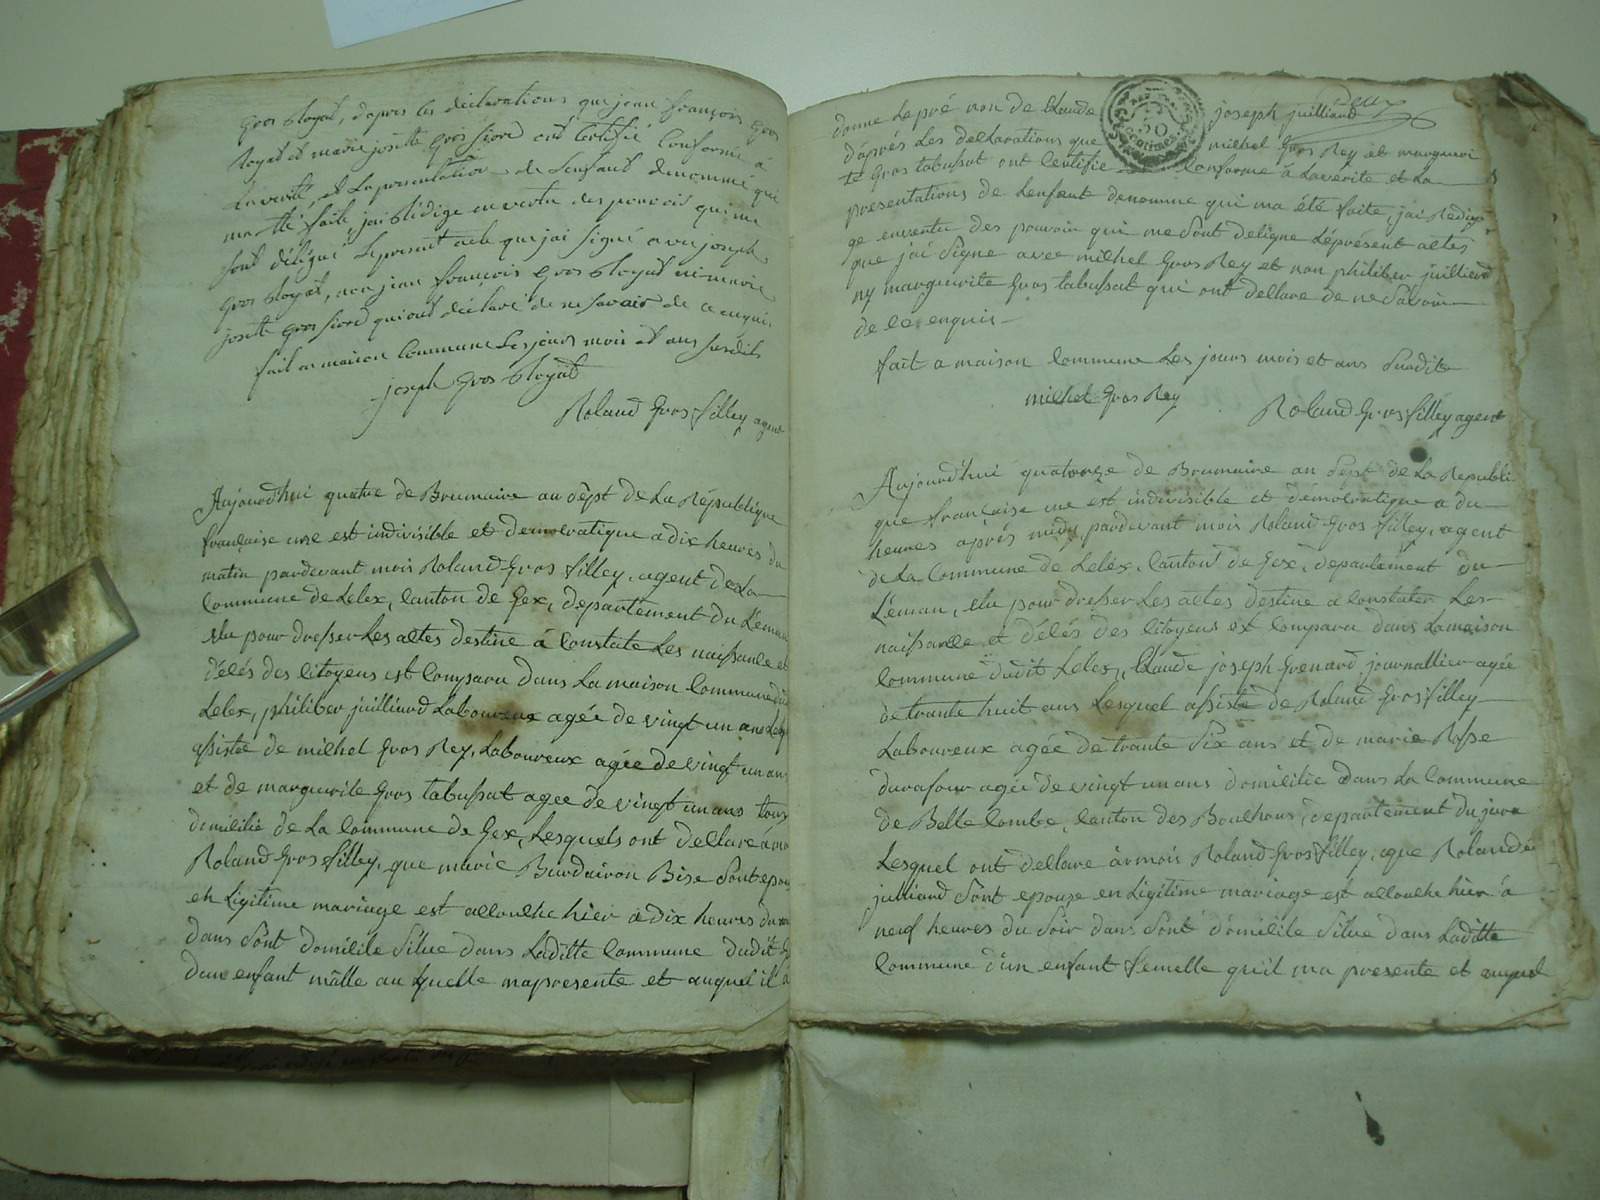 gros Royat, d'apres les déclarations que jean françois gros
Royat et marie josette gros fiord ont Certifié Conforme à
La verité, et La presentation de Lenfant denommé qui
ma été faite, jai Rédige en vertu des pouvoir qui me
sont délégué Le present acte que jai signé avec joseph
gros Royat, non jean françois gros Royat ni marie
josette gros fiord qui ont déclaré de ne savoir de ce enquis
fait a maison Commune Les jours mois et ans susdits
joseph gros Royat
Roland Gros filley agent
Aujourd'hui quatre de Brumaire an sept de La République
française une est indivisible et democratique a dix heures du
matin pardevant mois Roland Gros filley, agent de La
Commune de Lelex, Canton de Gex, departement du Leman
elu pour dresser Les actes destine à Constate Les naissance et
décés des Citoyens est Comparu dans La maison Commune
Lelex, philiber juilliard Laboureux agée de vingt un ans
assistée de michel Gros Rey, Laboureux agée de vingt un ans
et de marguerite Gros tabussat agee de vingt un ans tous
domicilié de La Commune de Gex, Lesquels ont dellare a
Roland Gros filley, que marie Burdairon Bise sont
en Ligitime mariage est allouche hier à dix heures du
dans sont domicile situe dans Laditte Commune dudit
dun enfant mâlle au quelle mapresente et auquel il à
donne Le pré non de Claude joseph juilliard
d'après Les declarations que michel Gros Rey et margueri
te Gros tabussat ont Certifie Conforme à La verite et La
presentations de Lenfant denomme qui ma été faite, jai Redige
ge en vertu des pouvoir qui me sont deligue Léprésent actes
que jai signe avec michel Gros Rey et non philiber juilliard
ny marguerite Gros tabussat qui ont dellare de ne savoir
de ce enquis
fait a maison Commune Les jours mois et ans susdite
michel Gros Rey
Roland Gros filley agent
Aujourd'hui quatorze de Brumaire an sept de La Republi
que française une est indivisible et démocratique a du
heures après midy pardevant mois Roland Gros filley, agent
de La Commune de Leléx, Canton de Gex, departement du
Léman, elu pour dresser Les actes destine a Constater Les
naissance et décés des Citoyens est Comparu dans La maison
Commune dudit Lelex, Claude joseph Grenard journallier agée
de trante huit ans Lesquel assiste de Roland Gros filley
Laboureux agée de trante six ans et de marie Rosse
durafour agée de vingt un ans domicilie dans La Commune
de Belle Combe, Canton des Bouchoux, departement du jura
Lesquel ont dellare à mois Roland Gros filley, que Rolande
juilliard sont epouze en Ligitime mariage est allouche hier à
neuf heures du soir dans sont domicile situe dans Laditte
Commune d'un enfant femelle qu'il ma presente et auquel